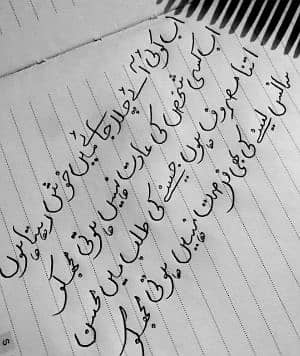 اب کوئی آئے چلا جائے میں خوش رہتا ہوں
اب کسی شخص کی عادت نہیں ہوتی مجھ کو
اتنا مصروف ہوں جینے کی طلب میں محسن
سانس لینے کی بھی فرصت نہیں ہوتی مجھ کو